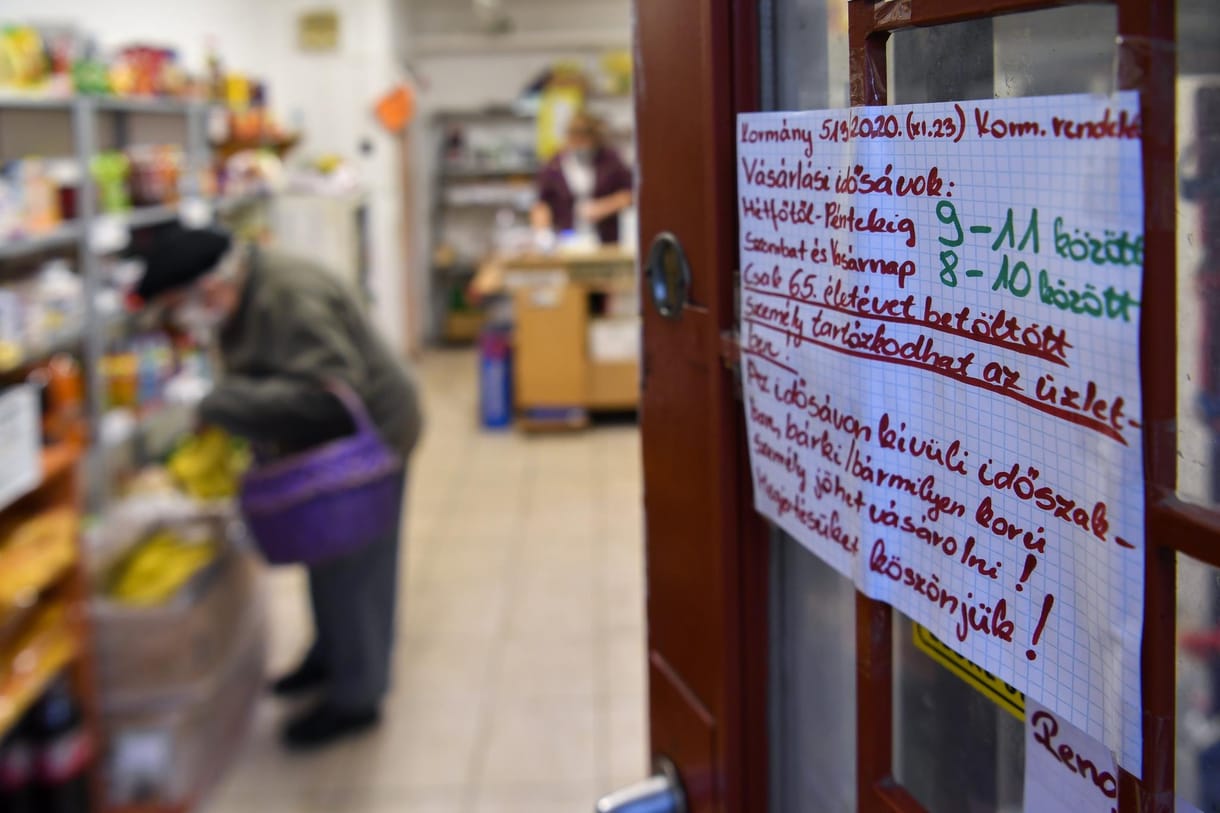 Kormány 513 2020. (XI.23) Korm. rendelet
Vásárlási idősávok:
Hétfőtől-Péntekig 9-11 között
Szombat és Vasárnap 8-10 között
Csak 65. életévet betöltött
személy tartózkodhat az üzlet-
ben.
Az idősávon kívüli időszak-
ban bárki/bármilyen korú
személy jöhet vásárolni!
Megértésüket köszönjük!
Rend